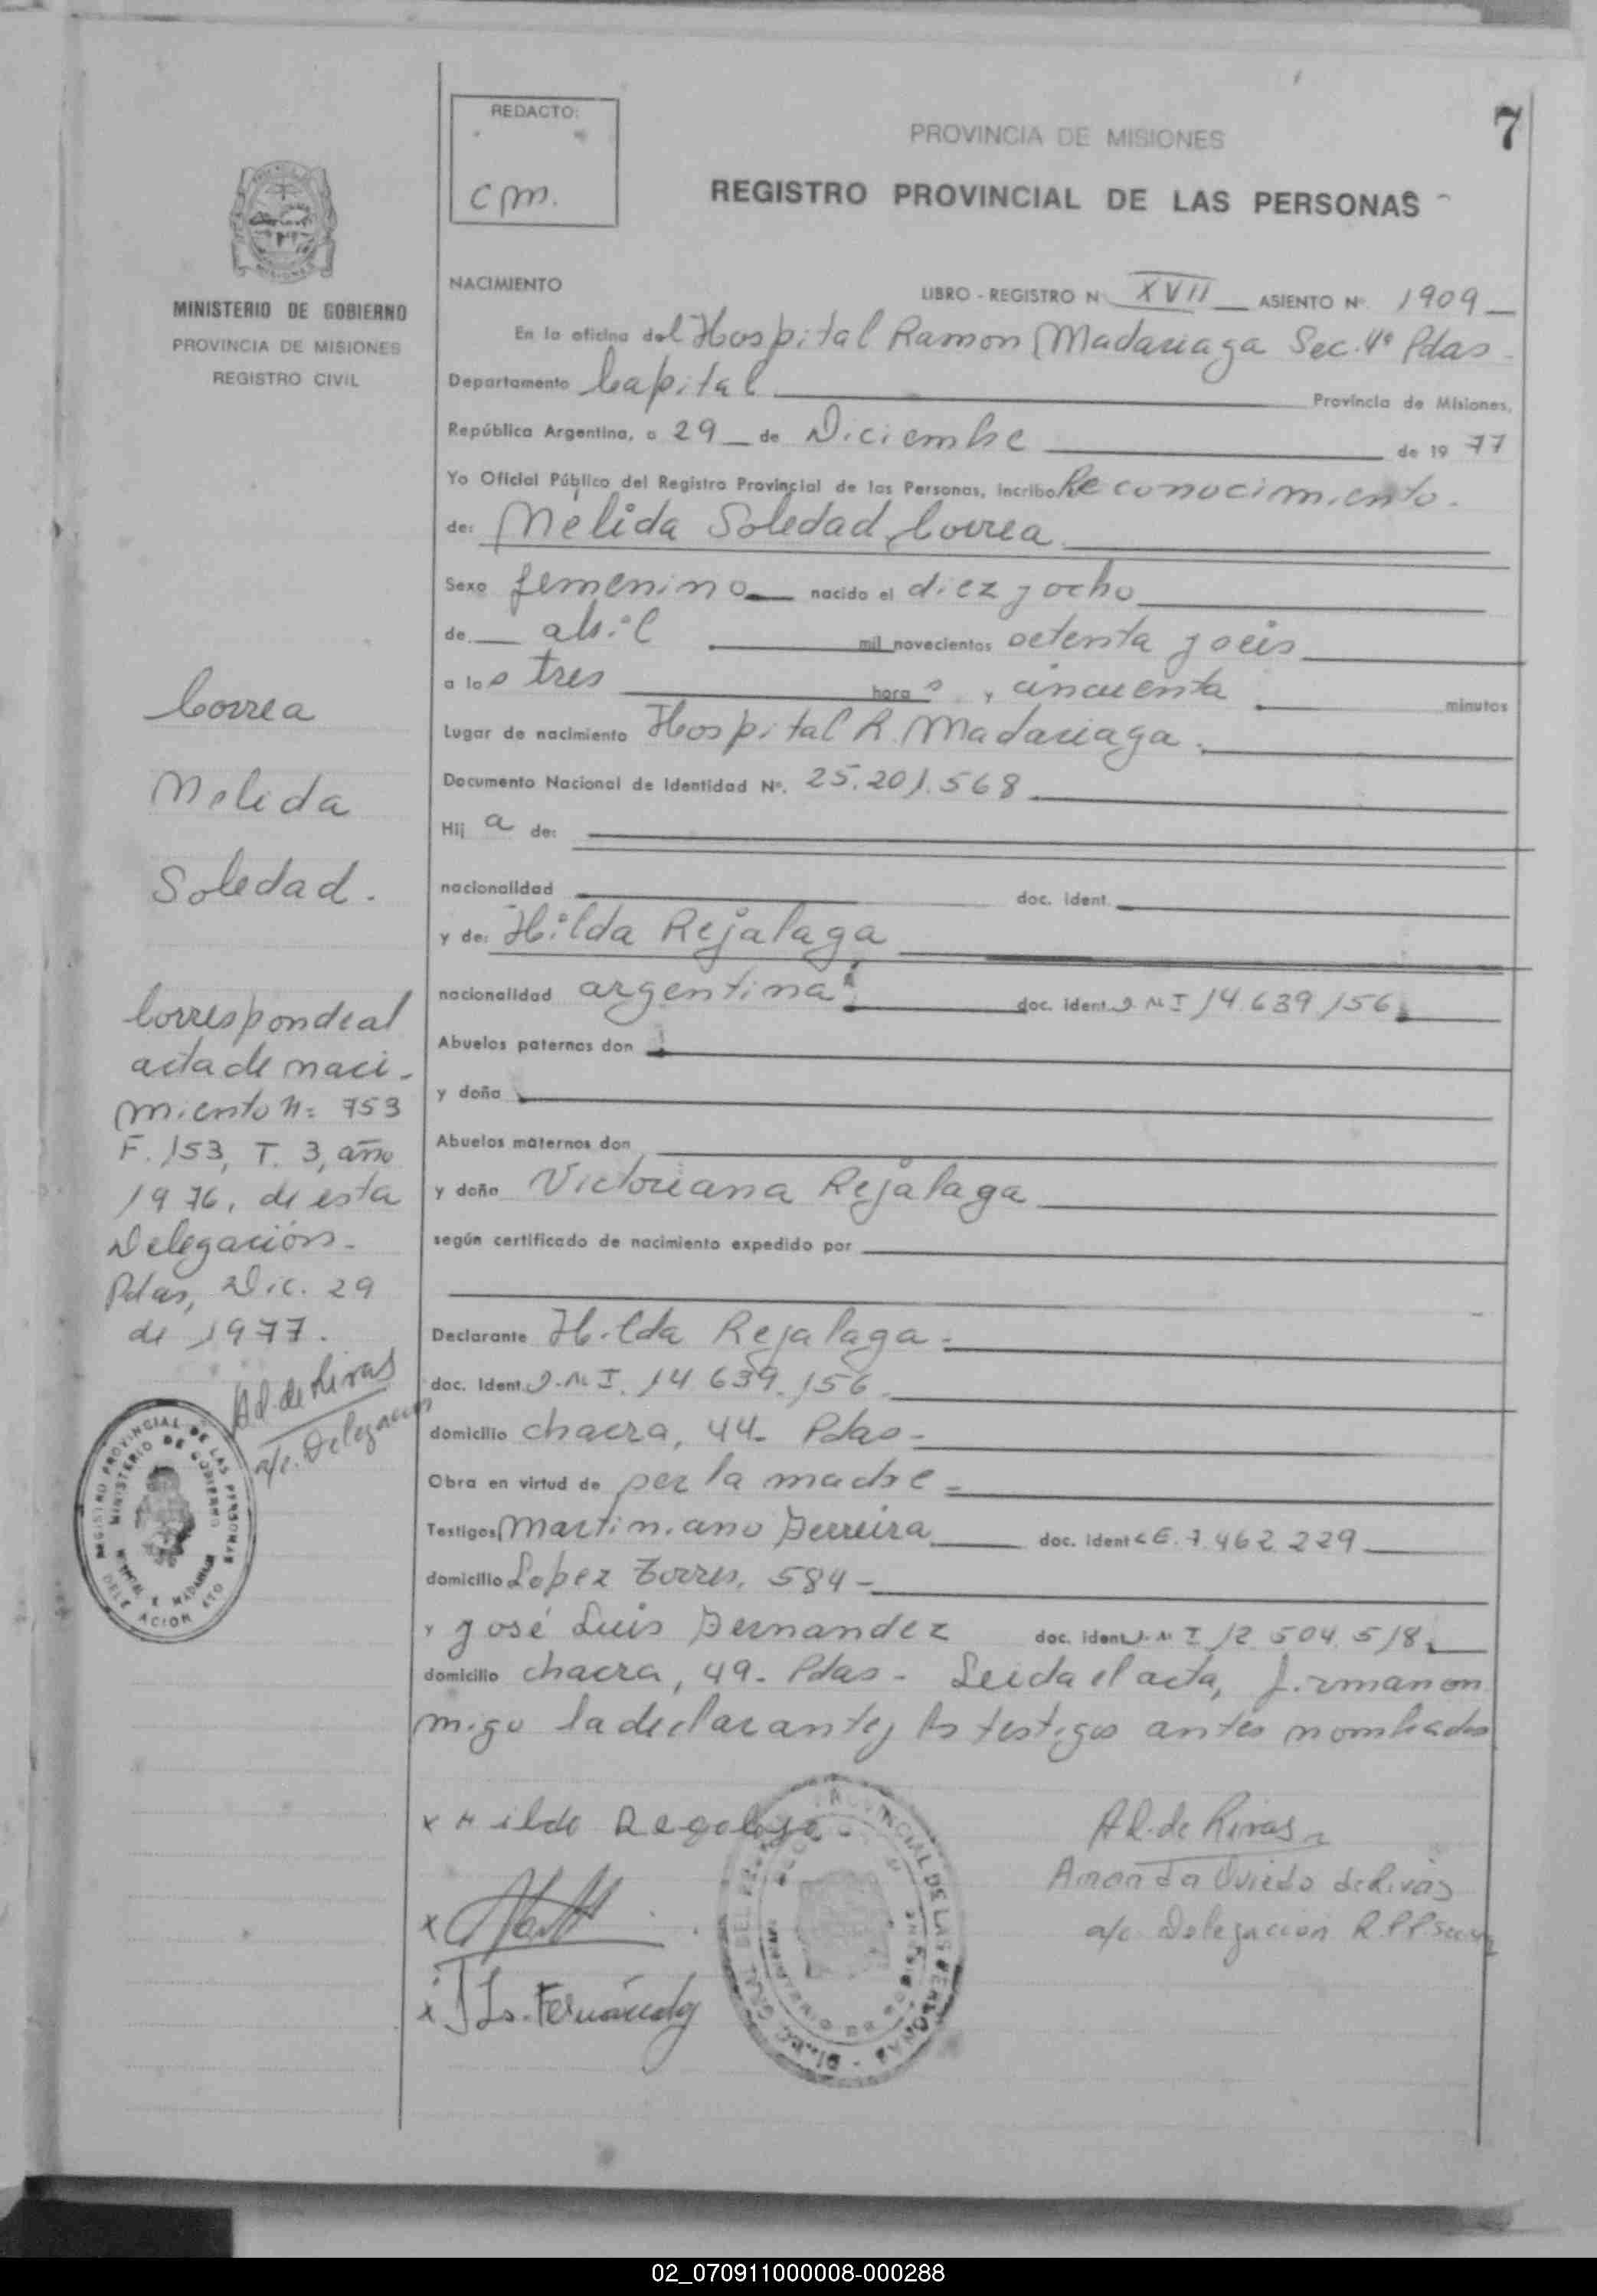 7
REDACTO:
cm.
PROVINCIA DE MISIONES
REGISTRO PROVINCIAL DE LAS PERSONAS
MINISTERIO DE GOBIERNO
PROVINCIA DE MISIONES
REGISTRO CIVIL
NACIMIENTO
LIBRO - REGISTRO N XVII ASIENTO Nº. 1909
En la oficina del Hospital Ramon Madariaga Sec. 4º Pdas
Departamento Capital Provincia de Misiones,
República Argentina, a 29 de Diciembre de 1977
Yo Oficial Público del Registro Provincial de las Personas, incribo Reconocimiento.
de: Melida Soledad Correa
Sexo femenino nacido el diez y ocho
de abril mil novecientos setenta y seis
a las tres horas y cincuenta minutos
Lugar de nacimiento Hospital R. Madariaga.
Documento Nacional de Identidad Nº. 25.201.568
Hija de:
nacionalidad doc. ident.
y de: Hilda Rejalaga
nacionalidad argentina doc. ident. D.N.I 14.639.156
Abuelos paternos don
y doña
Abuelos maternos don
y doña Victoriana Rejalaga
según certificado de nacimiento expedido por
Declarante Hilda Rejalaga.
doc. Ident. D.N.I. 14.639.156
domicilio chacra, 44. Pdas.
Obra en virtud de ser la madre
Testigos Martiniano Ferreira doc. ident C E. 7.462.229
domicilio Lopez Torres, 584-
y José Luis Fernandez doc. ident D.N.I 12.504.518
domicilio chacra, 49. Pdas - Leida el acta, firman con
migo la declarante y los testigos antes nombrados
Correa
Melida
Soledad.
Corresponde al
acta de naci-
miento N= 753
F. 153, T. 3, año
1976, de esta
Delegación.
Pdas, Dic. 29
de 1977.
Ad. de Rivas
a/c. Delegacion
REGISTRO PROVINCIAL DE LAS PERSONAS
MINISTERIO DE GOBIERNO
x Hilda Regalaga
x
x J Ls. Fernández
PROVINCIAL DE LAS PERSONAS
Ad. de Rivas
Amanda Oviedo de Rivas
a/c Delegacion R.P.P.
02_070911000008-000288